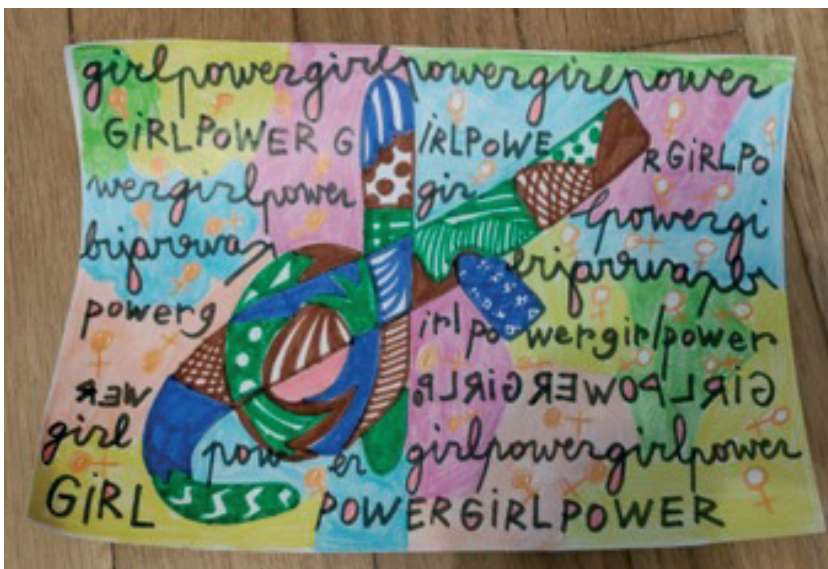 girlpowergirlpowergirlpower
GiRLPOWER GIRLPOWERGIRLPO
wergirlpower girlpowergi
powerg irlpowergirlpower
GIRLPOWERGIRLPOWER
girl power girlpowergirlpower
GiRL POWERGiRLPOWER